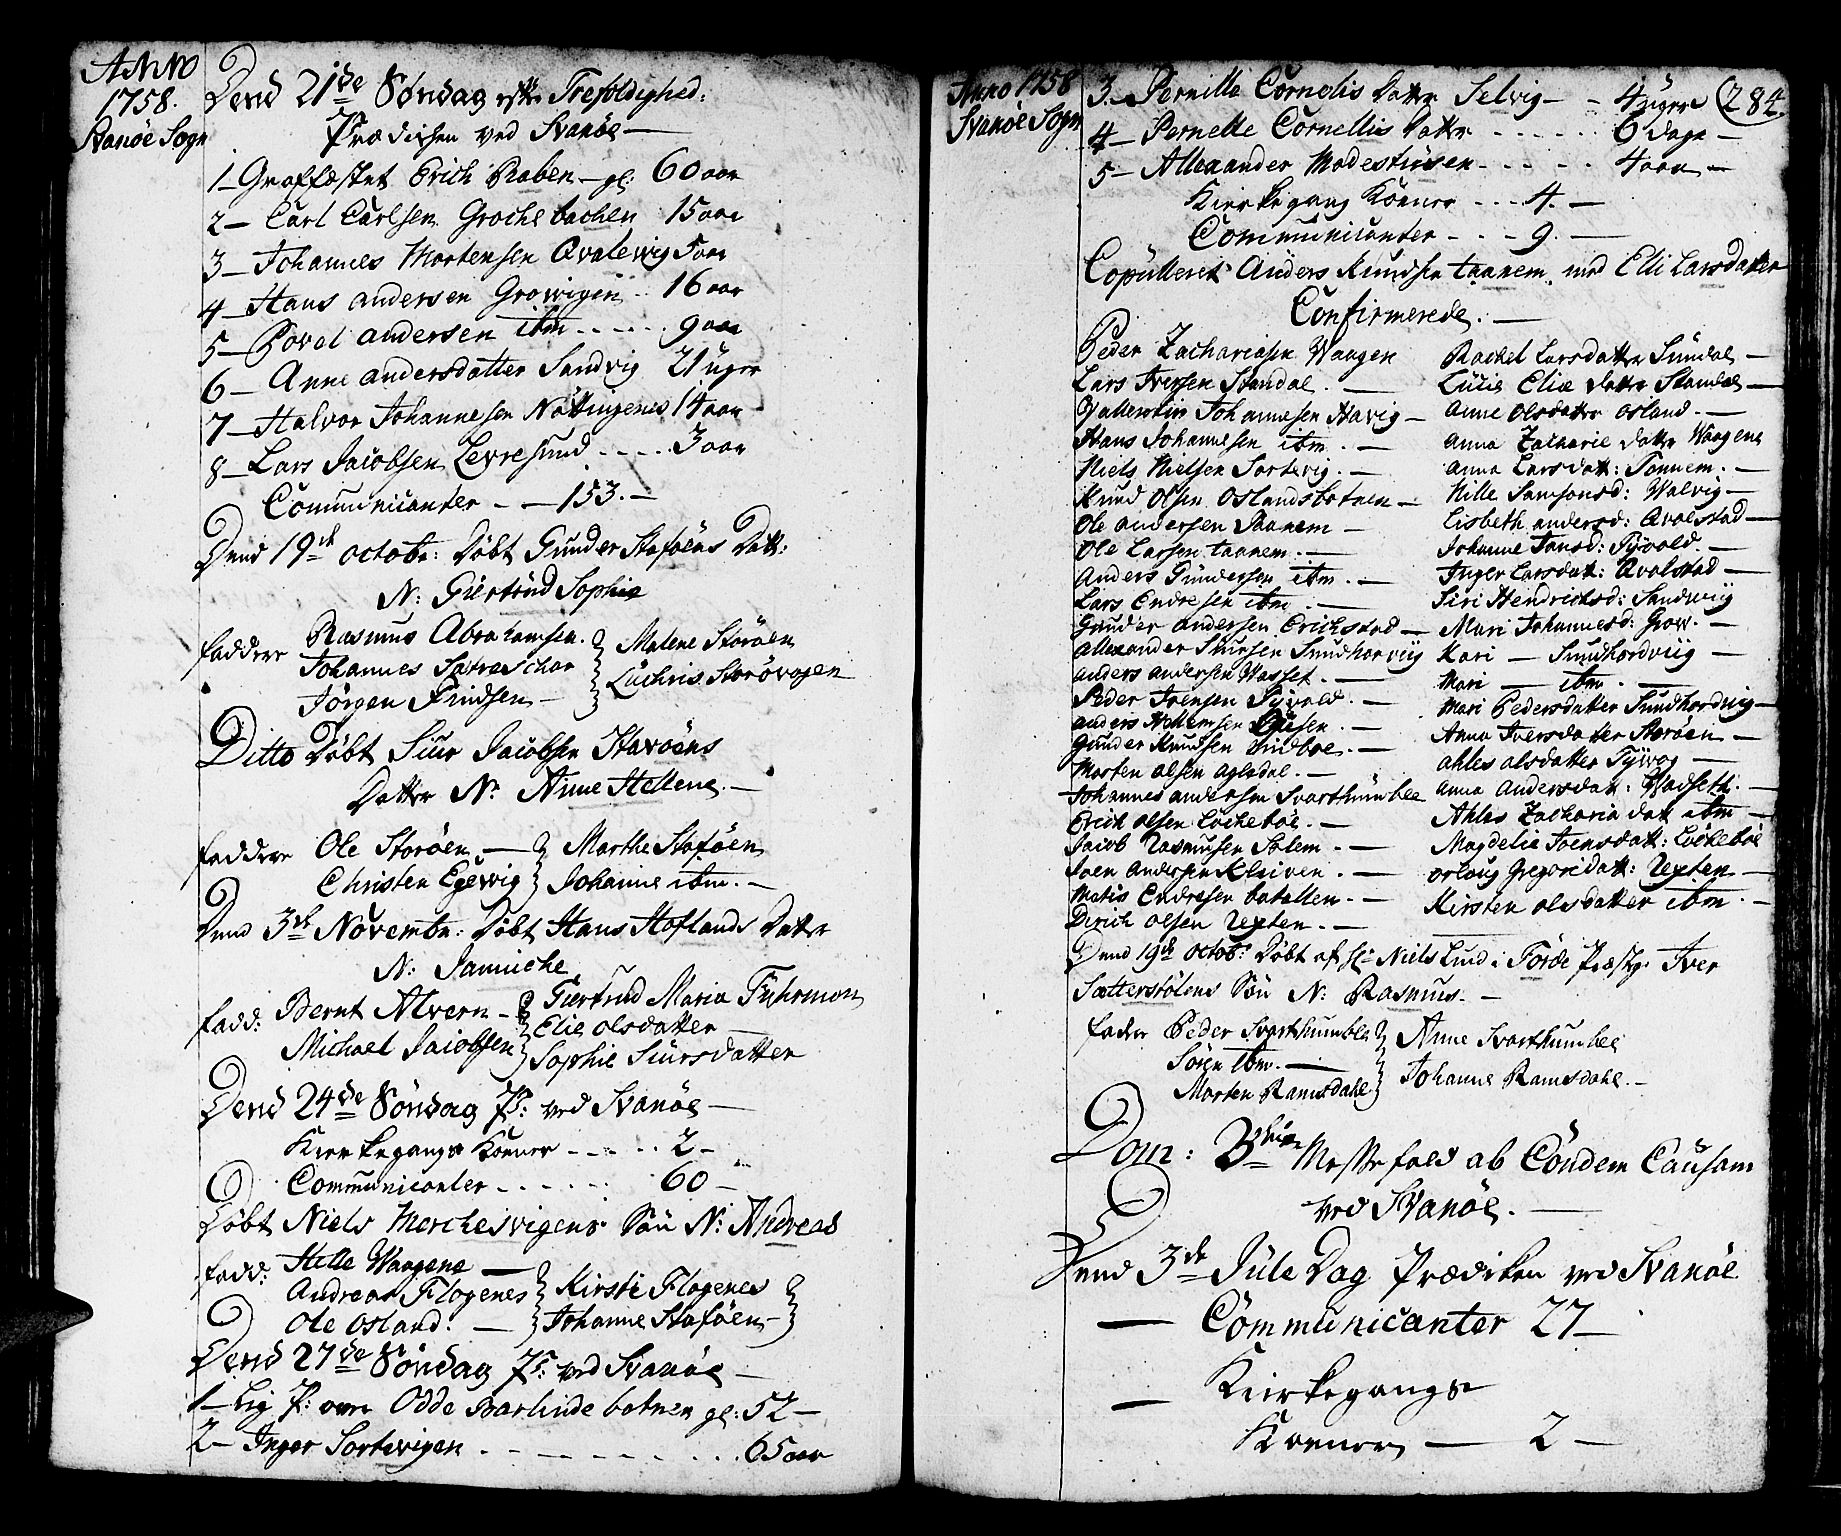 ANNO
1758.
Svanöe Sogn
Dend 21de Søndag efter Trefoldighed:
Prædicken ved Svanöe —
1 — Graffæstet Erich Raben — gl: 60 aar
2 — Carl Carlsen Grochebachen 15 aar
3 — Johannes Mortensen Qvalevig 5 aar
4 — Hans andersen Growigen .. 16 aar
5 — Povel andersen ibm ..... 9 aar
6 — Anne andersdatter Sandvig 21 uger
7 — Halvor Johannesen Nøttingenes 14 aar
8 — Lars Jacobsen Levresund .... 3 aar
Communicanter - — 153. —
Dend 19de octobr: Døbt Gunder Staføens Datt:
N: Giertrud Sophie
faddere Rasmus Abrahamsen. Malene Storöen
Johannes Luchris Storövagen
Jörgen Findsen —
Ditto Döbt Siur Jacobsen Stavöens
Datter N: Anne Hellene. —
faddere Ole Storöen — Marthe Staföen
Christen Egewig Johanne ibm. —
Dend 3de Novembr: Döbt Hans Hoflands Datter
N: Janniche
fadd: Bernt Alvern — Giertrud Maria Fuhrmon
Elie olsdatter —
Michael Jacobsen Sophie Siursdatter
Dend 24de Söndag P: ved Svanöe —
Kierkegangs Koener ..... 2 —
Communicanter ...... 60 —
Döbt Niels Merchesvigens Sön N: Andreas
fadd: Helle Waagene —
Andreas Flogenes Kirsti Flogenes
Ole Osland. — Johanne Staföen —
Dend 27de Söndag P: ved Svanöe —
1 — Lig P: over Odde Barlindebotnen gl: 52 —
2 — Inger Sortevigen ........ 65 aar
Anno 1758
Svanöe Sogn
284.
3 — Pernille Cornelis Datter Selvig — - 4 uger
4 — Pernelle Cornellis Datter ..... 6 dage —
5 — Allexander Modestusen ..... 4 aar —
Kierkegang Koener ... 4. —
Communicanter ... 9. —
Copulleret Anders Knudsen taanem, med Elli Larsdatter
Confirmerede. —
Peder Zachariasen Waagen Rachel Larsdatter Sundal —
Lars Iversen Standal. — Lucie Eliæ Datter Standal —
Johannesen Havig — Anne olsdatter osland. —
Hans Johannesen ibm. — anna Zacharie datter Waagene
Niels Nielsen Sortevig. — anna Larsdatt: Tonnem. —
Knud Olsen Oslandsbotnen — Nille Samsonsd: Walvig —
Ole andersen Taanem — Lisbeth andersd: Qvalstad —
Ole Larsen taanem. — Johanne Jonsd: Tyvold. —
Anders Gundersen ibm. — Inger Larsdatt: Qvalstad —
Lars Endresen ibm — Siri Hendrichsd: Sandwiig
Gunder andersen Erichstad — Mari Johannesd: Grow. —
Allexander Siursen Sundhorviig Kari — Sundhordviig —
anders andersen Wasset. — Mari — ibm. —
Peder Joensen Tyvold. — Mari Pedersdatter Sundhordvig —
anders Anna Iversdatter Storöen —
Gunder Knudsen Lindboe. — ahles olsdatter
Morten olsen agledal. — anna Andersdatt: Wadseth. —
Johannes andersen Svarthumlee Ahles Zacharia dat ibm —
Erich olsen Löckeböe. — Magdelie Joensdatt: Löckeböe
Jacob Rasmusen Solem. — Gregorsdatt: Uexten —
Joen Andersen Kleiven. — Kirsten olsdatter ibm. —
Matis Endresen batallen. —
Dirich olsen Uexten. —
Dend 19de octobr: Döbt af Hr: Niels Lund i Förde Præstg: Iver
Sætterstölens Sön N: Rasmus. —
fadere Peder Svarthumlen Anne Svarthumlee
Sören ibm. —
Morten Ramsdahl Johanne Ramsdahl. —
Dom: 3 Messefald ab Eondem Causam
ved Svanöe. —
Dend 3de Jule Dag Prædiken ved Svanöe
— Communicanter 27 —
— Kierkegangs
Koener — 2 —